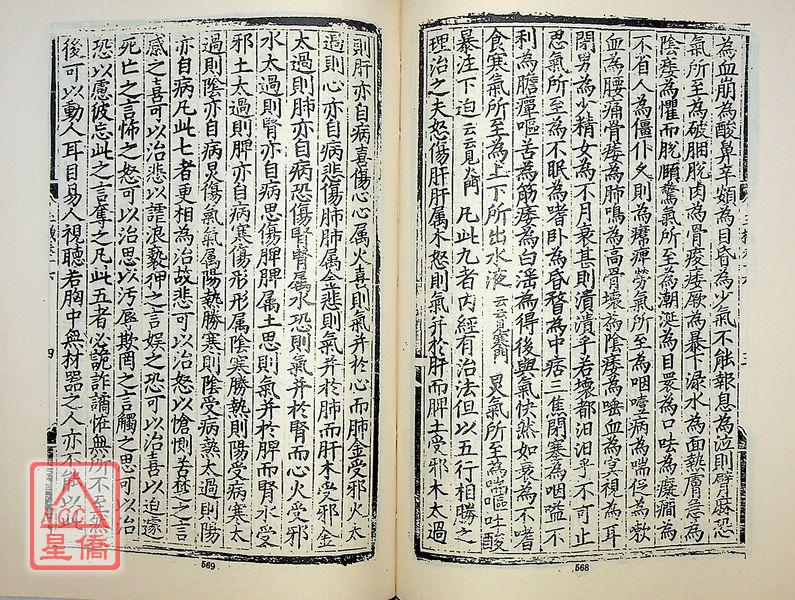 為血崩為酸鼻辛頞為目昏為少氣不能報息為泣則臂麻恐
氣所至為破䐃脫肉為骨痠痿厥為暴下淥水為面熱膚急為
陰痿為懼而脫頤驚氣所至為潮涎為目睘為口呿為癡癎為
不省人為僵仆久則為𤸷痺勞氣所至為咽噎病為喘促為嗽
血為腰痛骨痿為肺鳴為高骨壞為陰痿為唾血為冥視為耳
閉男為少精女為不月衰甚則潰潰乎若壞都汩汩乎不可止
思氣所至為不眠為嗜卧為昏瞀為中痞三焦閉塞為咽嗌不
利為膽癉嘔苦為筋痿為白淫為得後與氣快然如衰為不嗜
食寒氣所至為上下所出水液云云見寒門炅氣所至為喘嘔吐酸
暴注下迫云云見火門凡此九者内經有治法但以五行相勝之
理治之夫怒傷肝肝属木怒則氣并於肝而脾土受邪木太過
568
則肝亦自病喜傷心心属火喜則氣并於心而肺金受邪火太
過則心亦自病悲傷肺肺属金悲則氣并於肺而肝木受邪金
太過則肺亦自病恐傷腎腎属水恐則氣并於腎而心火受邪
水太過則腎亦自病思傷脾脾属土思則氣并於脾而腎水受
邪土太過則脾亦自病寒傷形形属陰寒勝熱則陽受病寒太
過則陰亦自病炅傷氣氣属陽熱勝寒則陰受病熱太過則陽
亦自病凡此七者更相為治故悲可以治怒以愴惻苦楚之言
感之喜可以治悲以謔浪褻狎之言娛之恐可以治喜以迫遽
死亡之言怖之怒可以治思以汚辱欺罔之言觸之思可以治
恐以慮彼忘此之言奪之凡此五者必詭詐譎怪無所不至然
後可以動人耳目易人視聽若胸中無材器之人亦不能以此
四
569
ACC
星僑